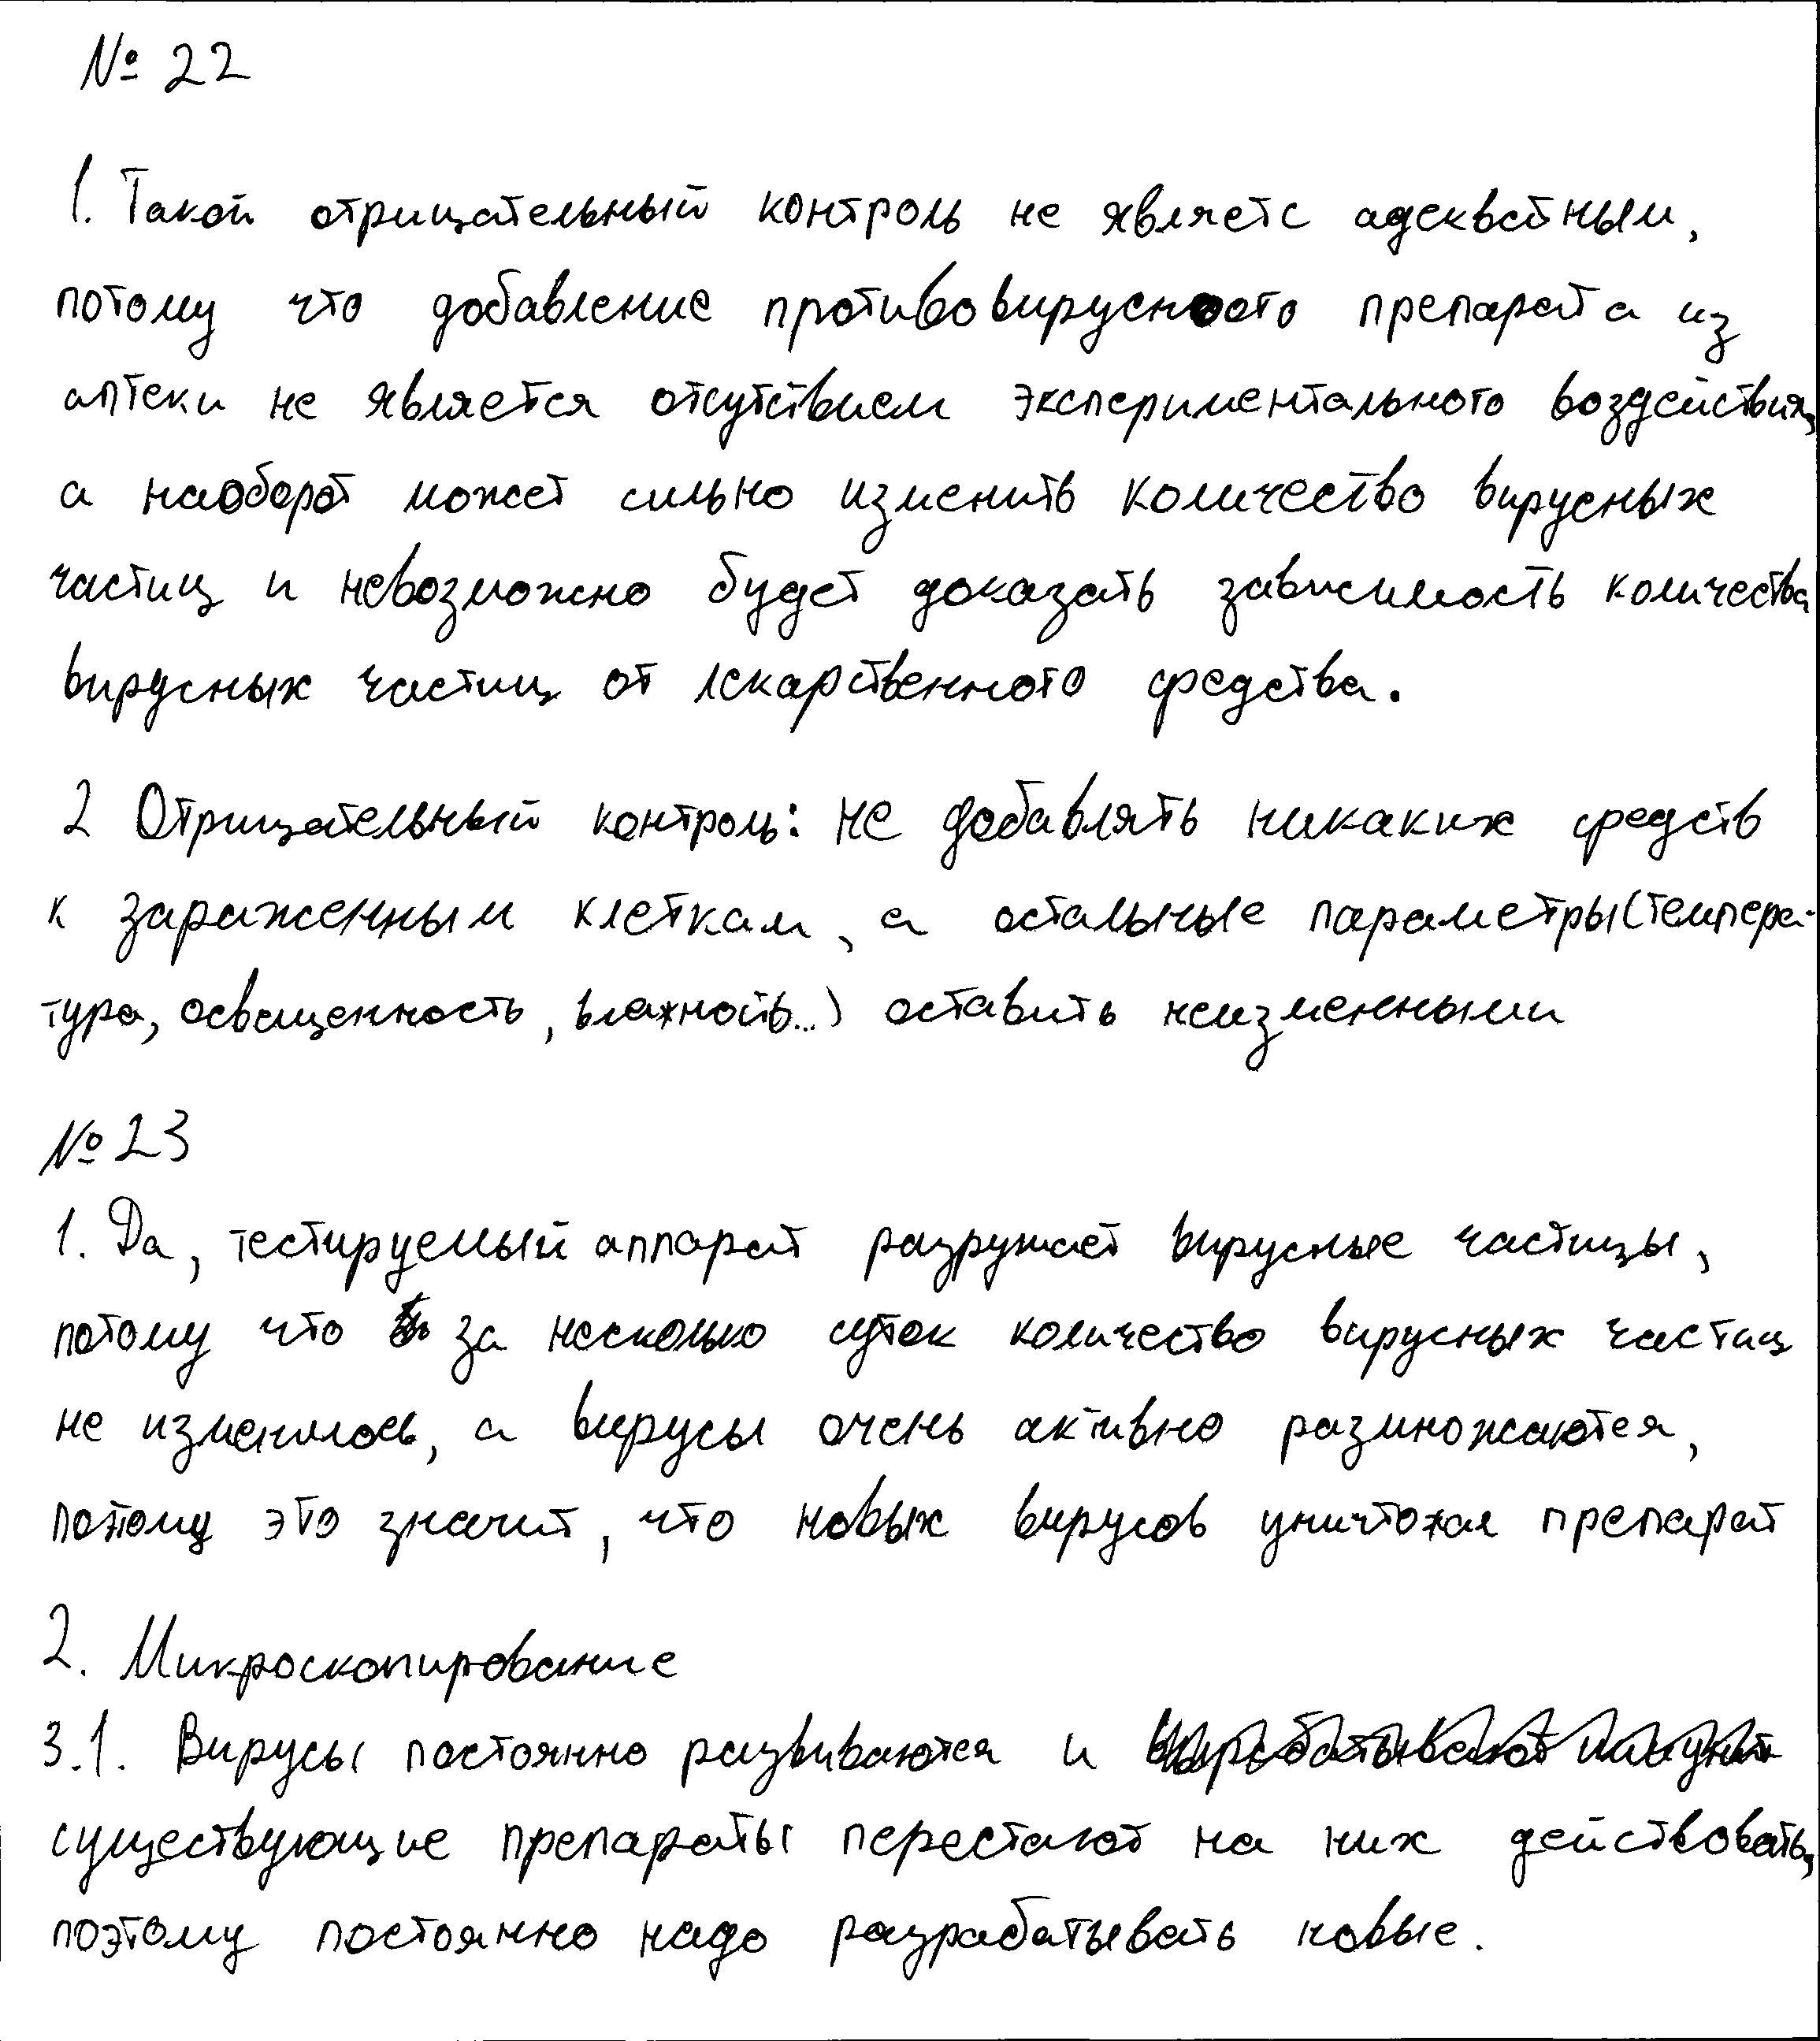 № 22
1. Такой отрицательный контроль не являетс адекватным,
потому что добавление противовирусного препарата из
аптеки не является отсутствием экспериментального воздействия,
а наоборот может сильно изменить количество вирусных
частиц и невозможно будет доказать зависимость количества
вирусных частиц от лекарственного средства.
2 Отрицательный контроль: не добавлять никаких средств
к зараженным клеткам, а остальные параметры (темпера-
тура, освещенность, влажность...) оставить неизменными
№ 23
1. Да, тестируемый аппарат разружает вирусные частицы,
потому что за несколько суток количество вирусных частиц
не изменилось, а вирусы очень активно размножаются,
потому это значит, что новых вирусов уничтожал препарат
2. Микроскопирование
3.1. Вирусы постоянно развиваются и
существующие препараты перестают на них действовать,
поэтому постоянно надо разрабатывать новые.